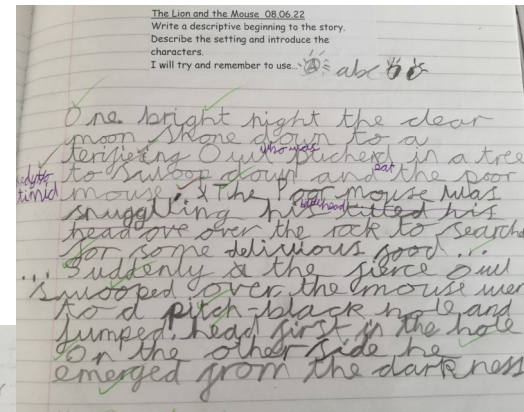 The Lion and the Mouse 08.06.22
Write a descriptive beginning to the story.
Describe the setting and introduce the
characters.
I will try and remember to use... A abc
One bright night the clear
moon shone down to a
who was
terifieing Owl puched in a tree
eat
to swoop down and the poor
timid
mouse. The Poor mouse was
snuggling his tilted his
head ove over the rock to search
for some deliuious food...
... Suddenly the fierce Owl
swooped over the mouse wen
to a pitch-black hole and
jumped head first in the hole
On the other side he
emerged from the darkness